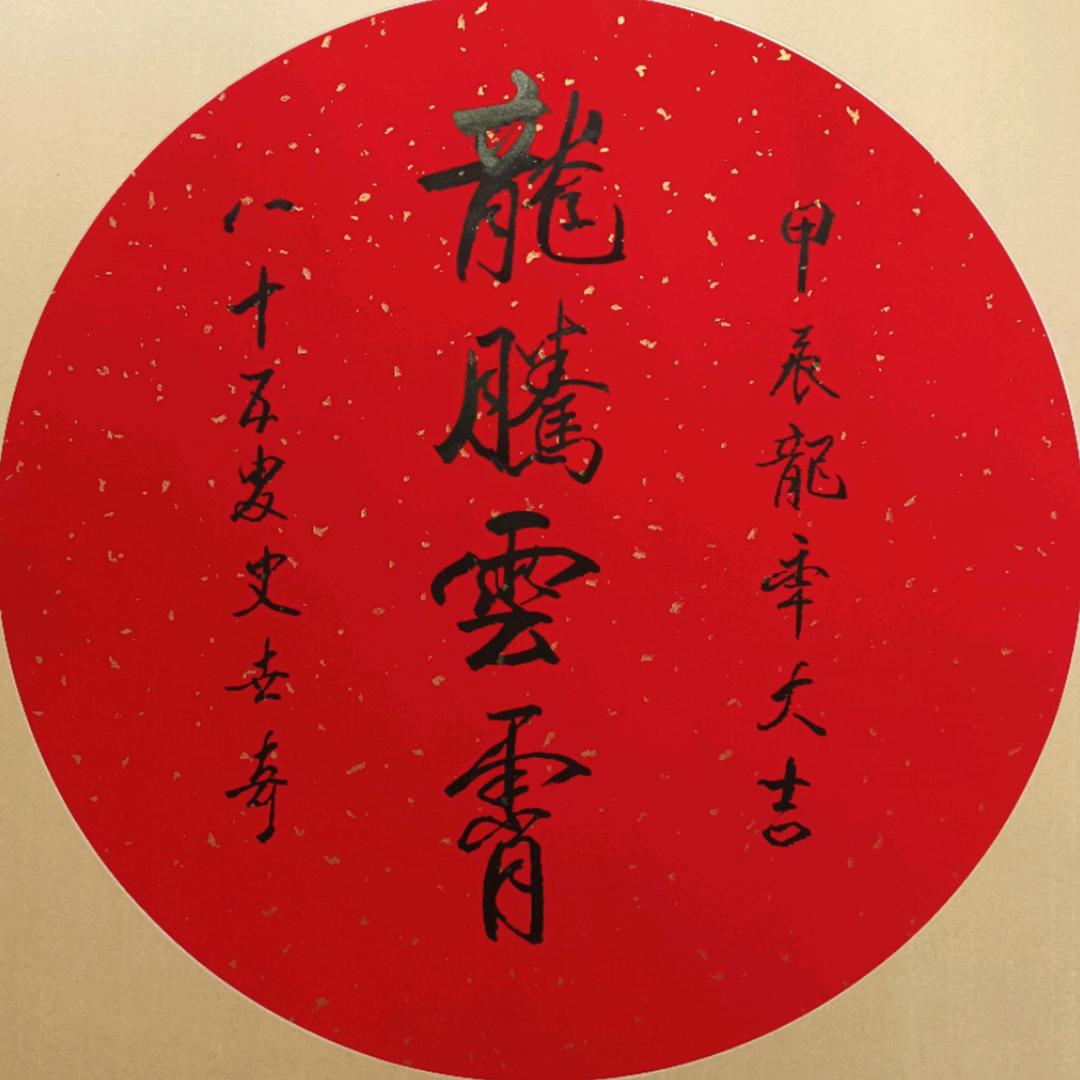 甲辰龍年大吉
龍騰雲霄
八十五叟史世奇